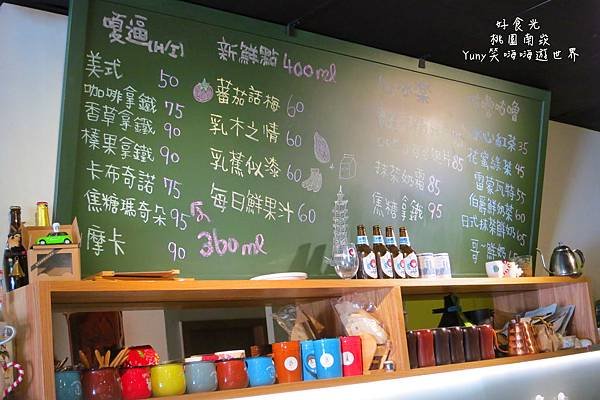 嘎逼(H/I)
美式 50
咖啡拿鐵 75
香草拿鐵 90
榛果拿鐵 90
卡布奇諾 75
焦糖瑪奇朵 95
摩卡 90
新鮮點 400ml
蕃茄話梅 60
乳木之情 60
乳蕉似漆 60
每日鮮果汁 60
360ml
85
抹茶奶霜 85
焦糖拿鐵 95
咕嚕咕嚕
冰心紅茶 35
花蜜綠茶 95
雷家瓦特 55
伯爵鮮奶茶 60
日式抹茶鮮奶 65
好食光
桃園南崁
Yuny笑嗨嗨遊世界